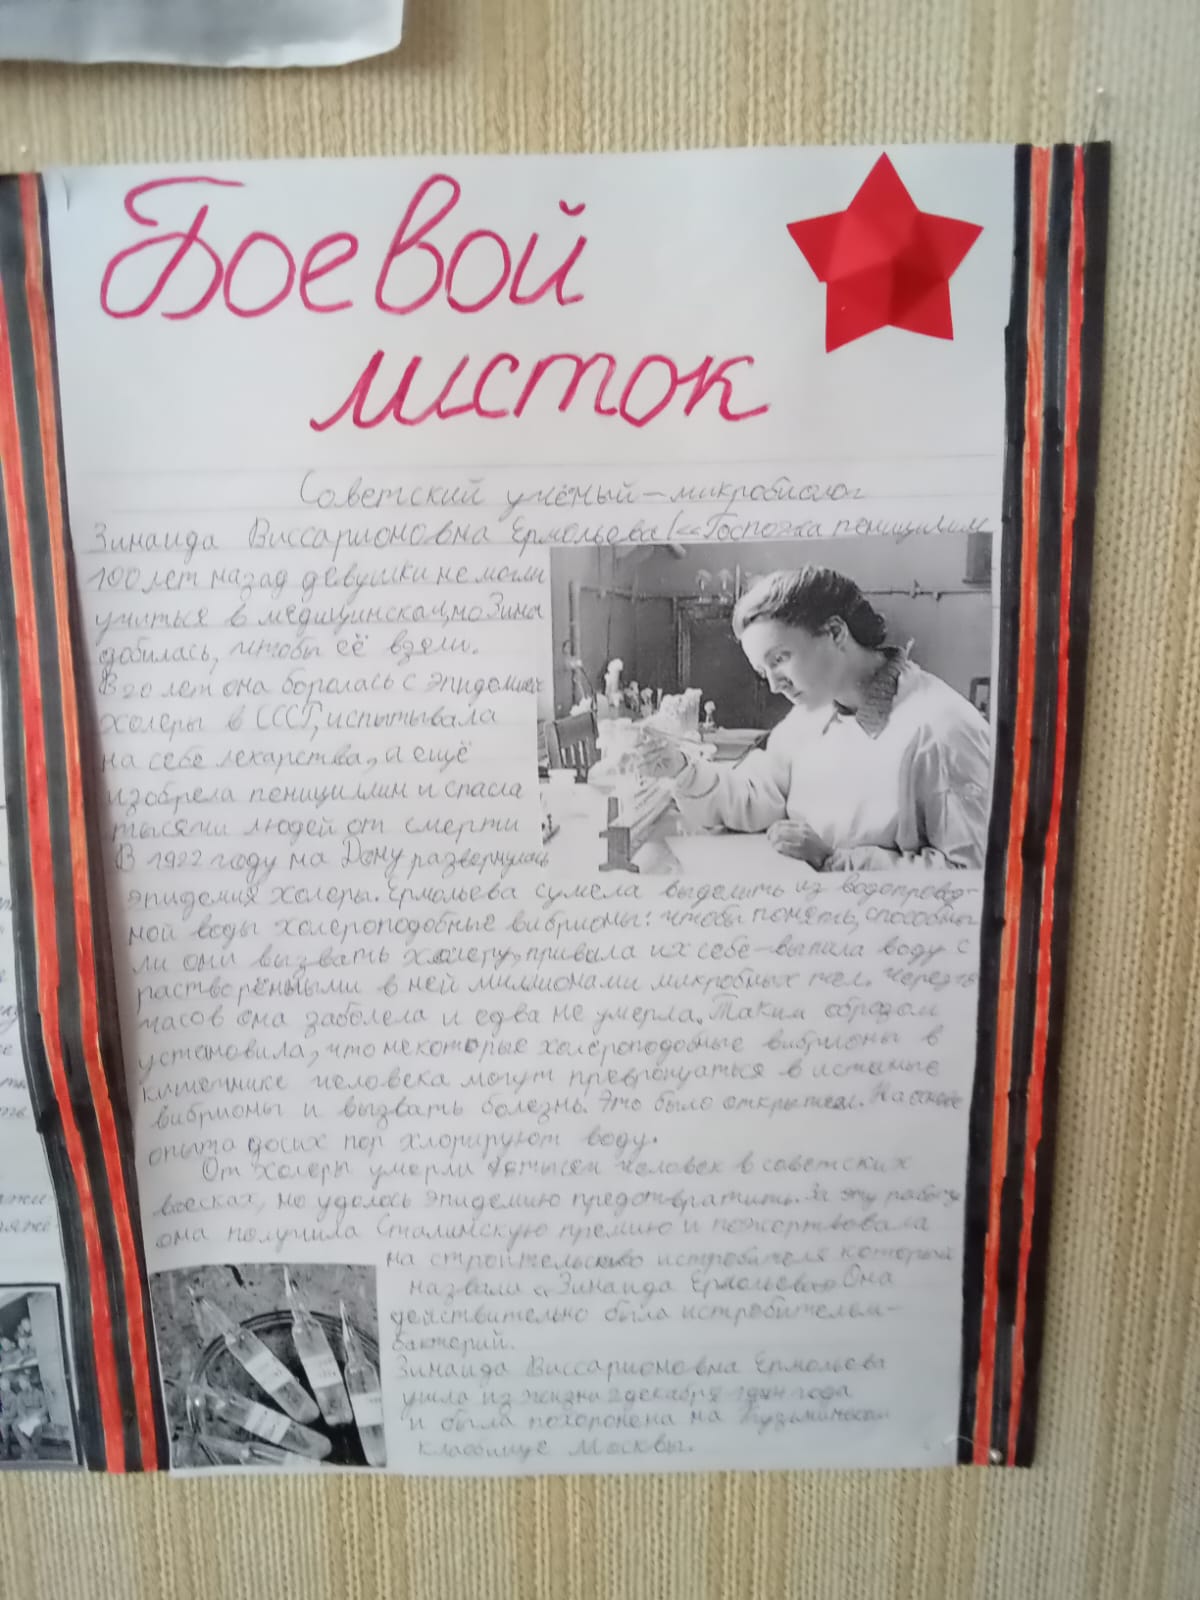 Боевой
листок
Советский учёный-микробиолог
Зинаида Виссарионовна Ермольева («Госпожа пенициллин
100 лет назад девушки не могли
учиться в медицинской, но Зина
добилась, чтобы её взяли.
В 20 лет она боролась с эпидемией
холеры в СССР, испытывала
на себе лекарства, а ещё
изобрела пенициллин и спасла
тысячи людей от смерти
В 1922 году на Дону развернулась
эпидемия холеры. Ермольева сумела выделить из водопровод-
ной воды холероподобные вибрионы: чтобы понять, способны
ли они вызвать холеру, привила их себе-выпила воду с
растворёнными в ней миллионами микробных тел. Через
часов она заболела и едва не умерла. Таким образом
установила, что некоторые холероподобные вибрионы в
кишечнике человека могут превращаться в истинные
вибрионы и вызвать болезнь. Это было открытием. На основе
опыта до сих пор хлорируют воду.
От холеры умерли тысяч человек в советских
войсках, но удалось эпидемию предотвратить. За эту работу
она получила Сталинскую премию и пожертвовала
на строительство истребителя который
назвали «Зинаида Ермольева» Она
действительно была истребителем-
бактерий.
Зинаида Виссарионовна Ермольева
ушла из жизни 2 декабря года
и была похоронена на Кузьминском
кладбище Москвы.